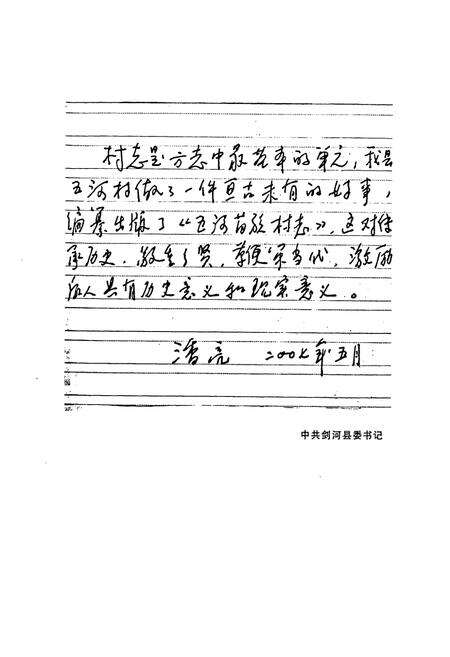 村志是方志中最基本的单元，我县
五河村做了一件亘古未有的好事，
编纂出版了《五河苗族村志》，这对传
承历史，敬重乡贤，当代，激励
后人具有历史意义和现实意义。
潘亮 二00七年五月
中共剑河县委书记